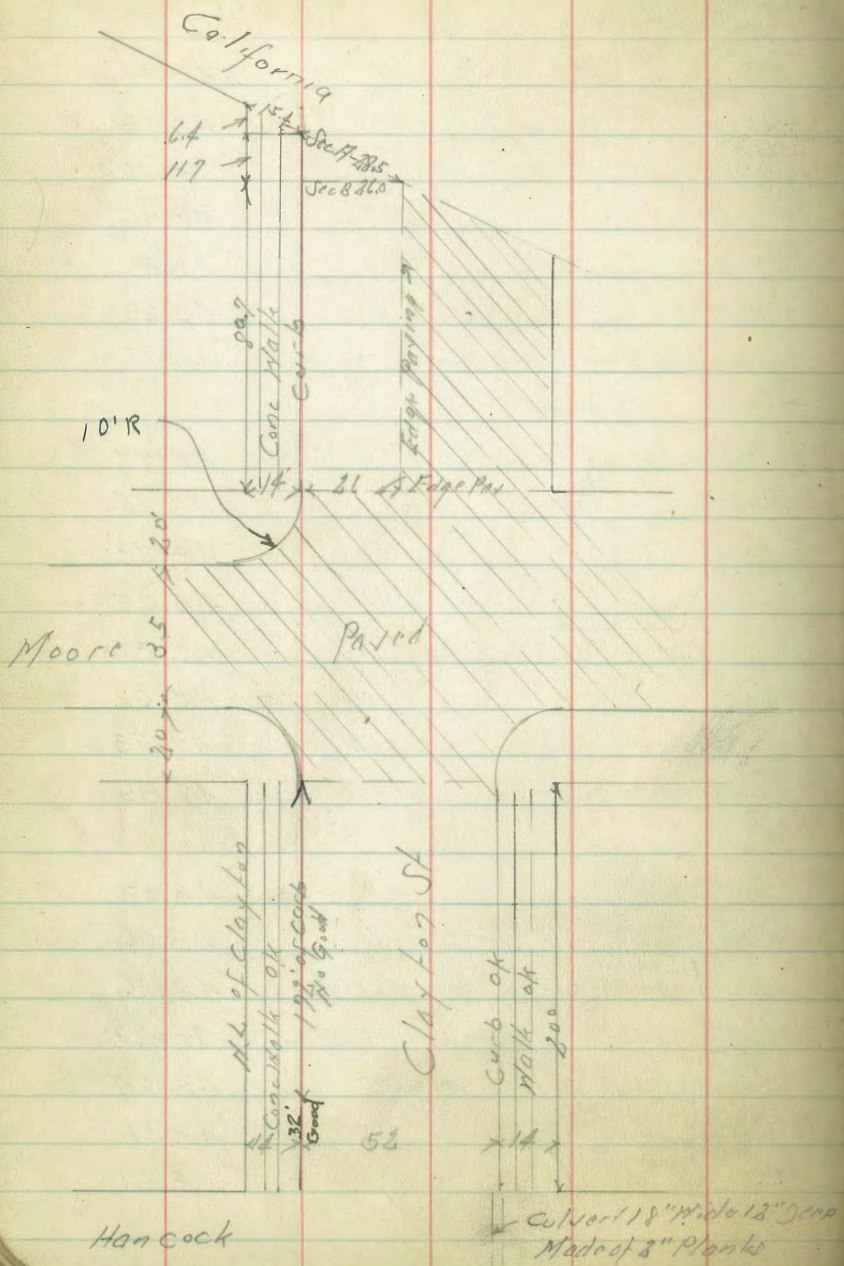 California
15.4
6.4
11.7
Sec A-28.5
Sec B 26.0
80.7
Conc Walk
Curb
Edge Paving
10'R
14'
26
Edge Pav
20
Moore
35
Paved
20
N.L. of Clayton
Conc Walk ok
of Curb
No Good
Clayton St
Curb ok
Walk ok
200
32'
Good
14
52
14
Hancock
Culvert 18" Wide 12" Deep
Made of 2" Planks